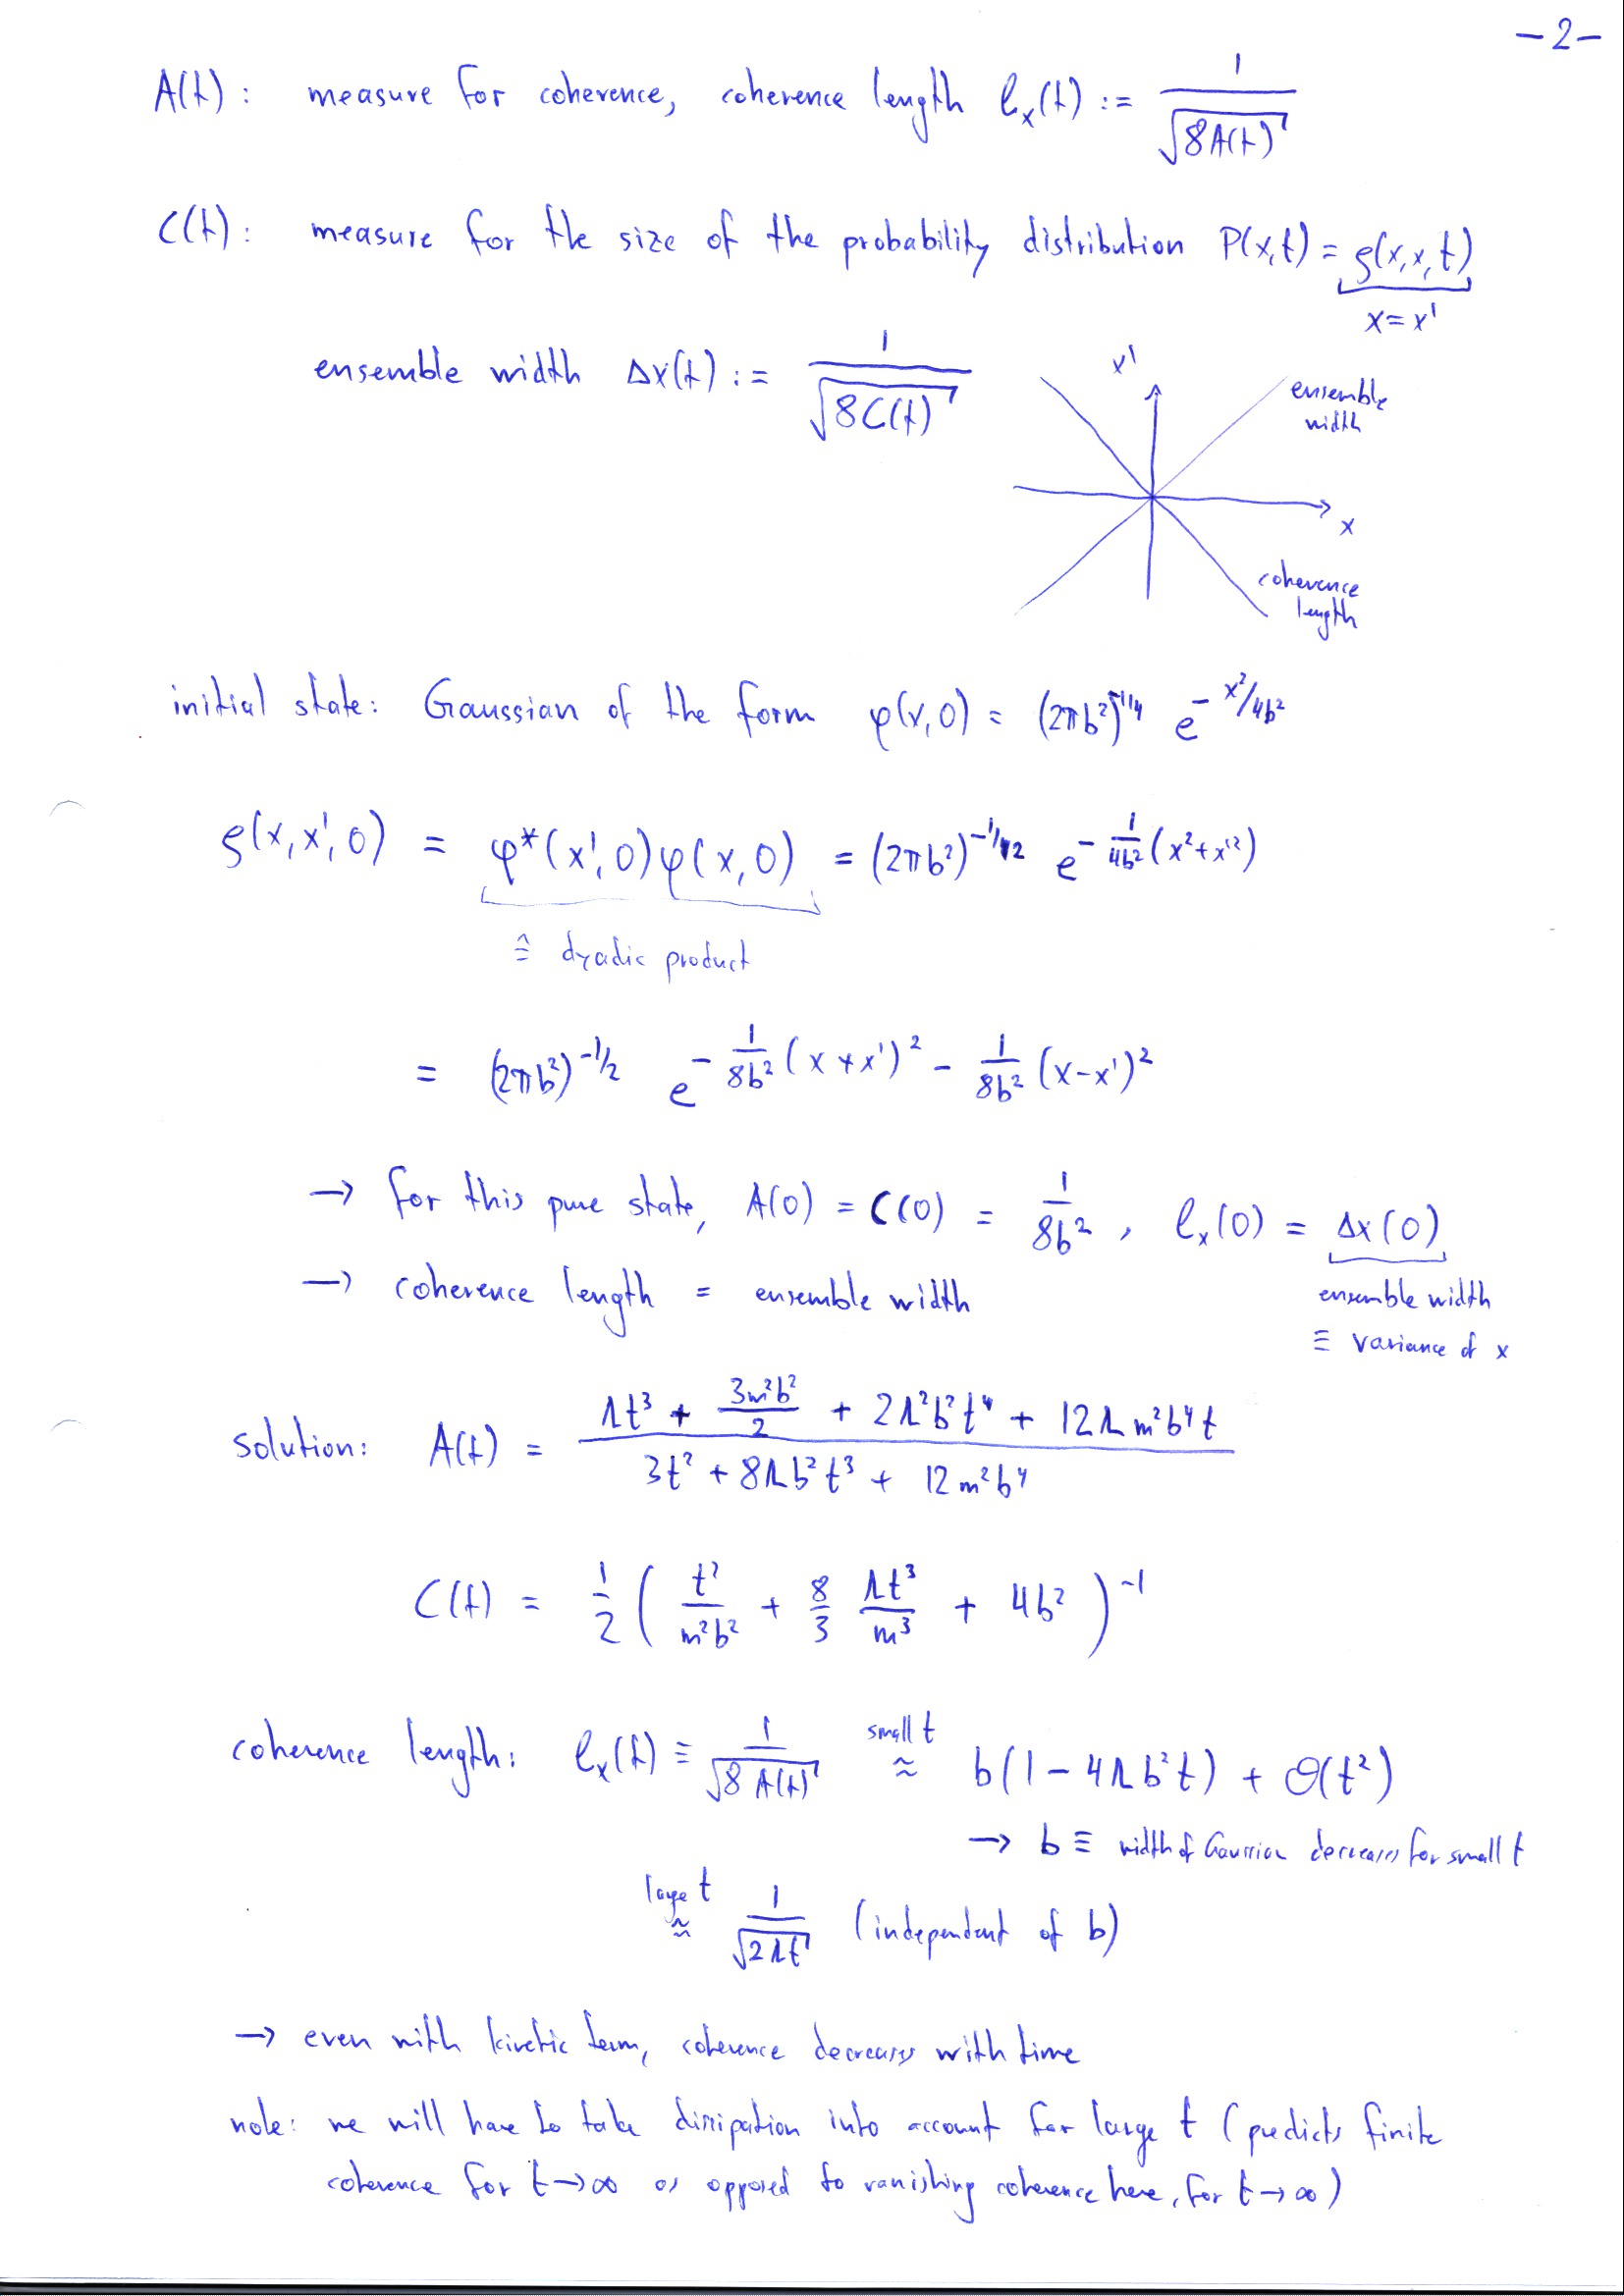 -2-
A(t): measure for coherence, coherence length ℓ_x(t) := 1/√(8A(t))
C(t): measure for the size of the probability distribution P(x,t) = ρ(x,x,t)
x=x'
ensemble width Δx(t) := 1/√(8C(t))
x'
ensemble
width
x
coherence
length
initial state: Gaussian of the form φ(x,0) = (2πb²)^{-1/4} e^{-x²/4b²}
ρ(x,x',0) = φ*(x',0)φ(x,0) = (2πb²)^{-1/2} e^{-\frac{1}{4b²}(x²+x'²)}
≙ dyadic product
= (2πb²)^{-1/2} e^{-\frac{1}{8b²}(x+x')² - \frac{1}{8b²}(x-x')²}
→ for this pure state, A(0) = C(0) = 1/8b², ℓ_x(0) = Δx(0)
→ coherence length = ensemble width
ensemble width
≡ variance of x
solution: A(t) = \frac{Λt³ + \frac{3m²b²}{2} + 2Λ²b²t⁴ + 12Λm²b⁴t}{3t² + 8Λb²t³ + 12m²b⁴}
C(t) = \frac{1}{2} ( \frac{t²}{m²b²} + \frac{8}{3} \frac{Λt³}{m³} + 4b² )^{-1}
coherence length: ℓ_x(t) ≡ 1/√(8A(t)) ≈ (small t) b(1 - 4Λb²t) + O(t²)
→ b ≡ width of Gaussian decreases for small t
≈ (large t) 1/√(2Λt) (independent of b)
→ even with kinetic term, coherence decreases with time
note: we will have to take dissipation into account for large t (predicts finite
coherence for t→∞ as opposed to vanishing coherence here, for t→∞)